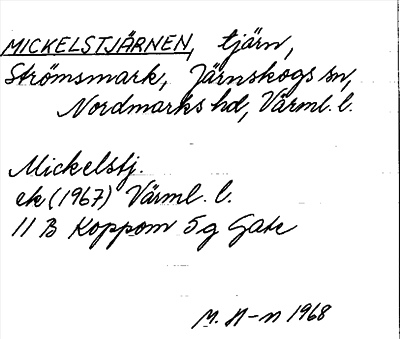 MICKELSTJÄRNEN, tjärn,
Strömsmark, Järnskogs sn,
Nordmarks hd, Värml. l.
Mickelstj.
ek (1967) Värml. l.
11 B Koppom 5g
M. H-n 1968